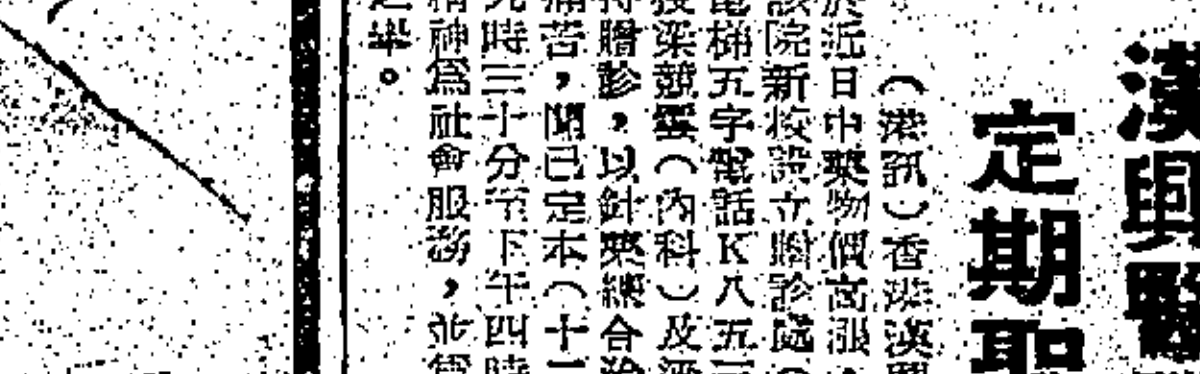 漢興醫
定期
（港訊）香港漢興
於近日中藥物價高漲
該院新校設立贈診處
電梯五字電話K八五三
授梁競雲（內科）及
持贈診，以針藥綜合治
痛苦，聞已定本（十二
時三十分至下午四時
精神為社會服務，並
舉。